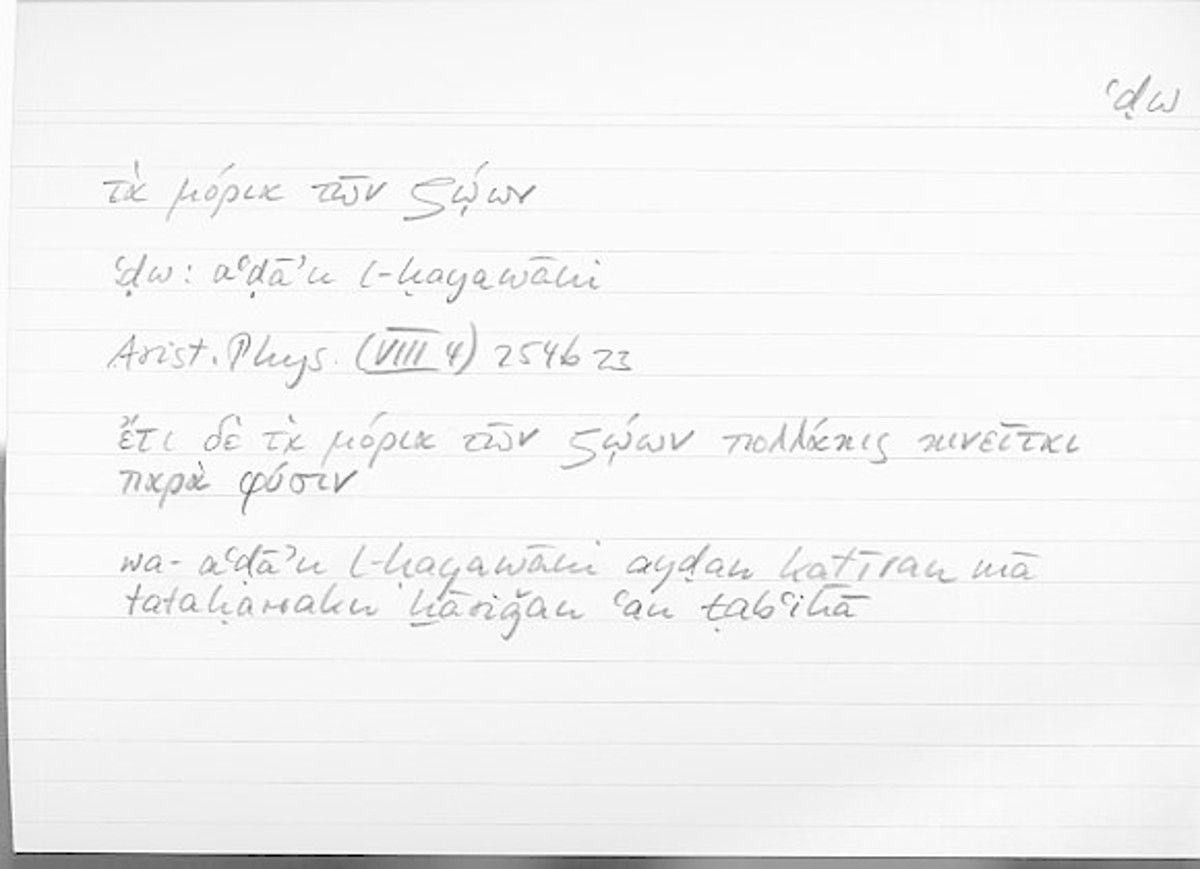 ʿḍw
τὰ μόρια τῶν ζῴων
ʿḍw: aʿḍāʾu l-ḥayawāni
Arist. Phys. (VIII 4) 254b23
ἔτι δὲ τὰ μόρια τῶν ζῴων πολλάκις κινεῖται
παρὰ φύσιν
wa-aʿḍāʾu l-ḥayawāni ayḍan katīran mā
tataḥarraku ḫāriǧan ʿan ṭabʿihā